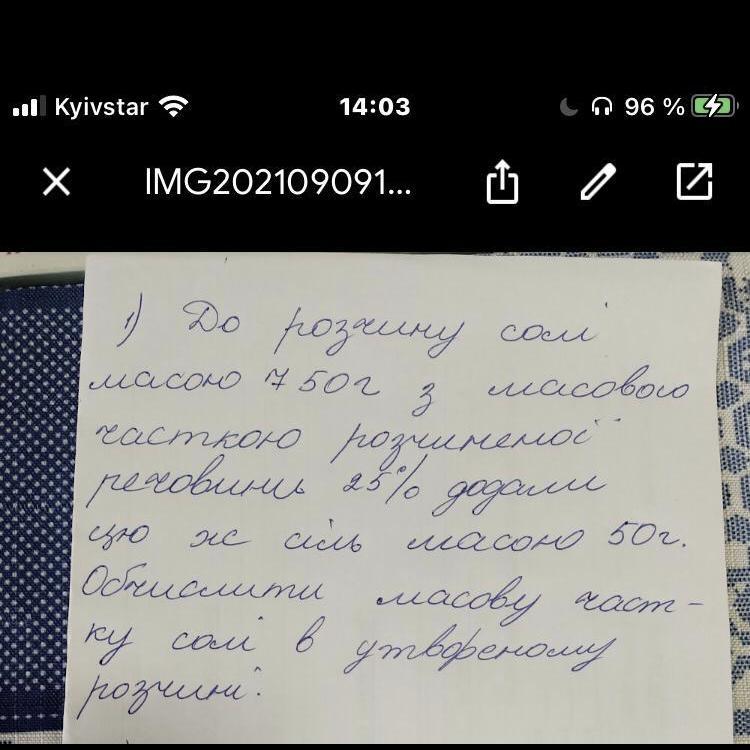 Kyivstar 14:03 96 %
IMG202109091...
1) До розчину солі
масою 750г з масовою
часткою розчиненої
речовини 25% додали
цю ж сіль масою 50г.
Обчислити масову част-
ку солі в утвореному
розчині.